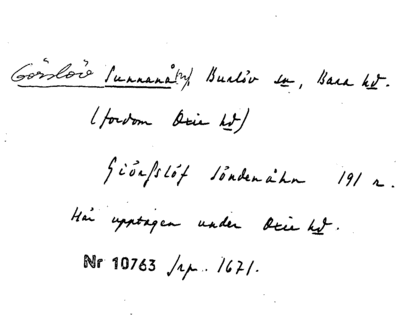 Görslöv Sunnanå(n) Burlöv sn, Bara hd.
(fordom Oxie hd)
Giörsslöf söndenåhn 191 r.
Här upptagen under Oxie hd.
Nr 10763 Jrp. 1671.